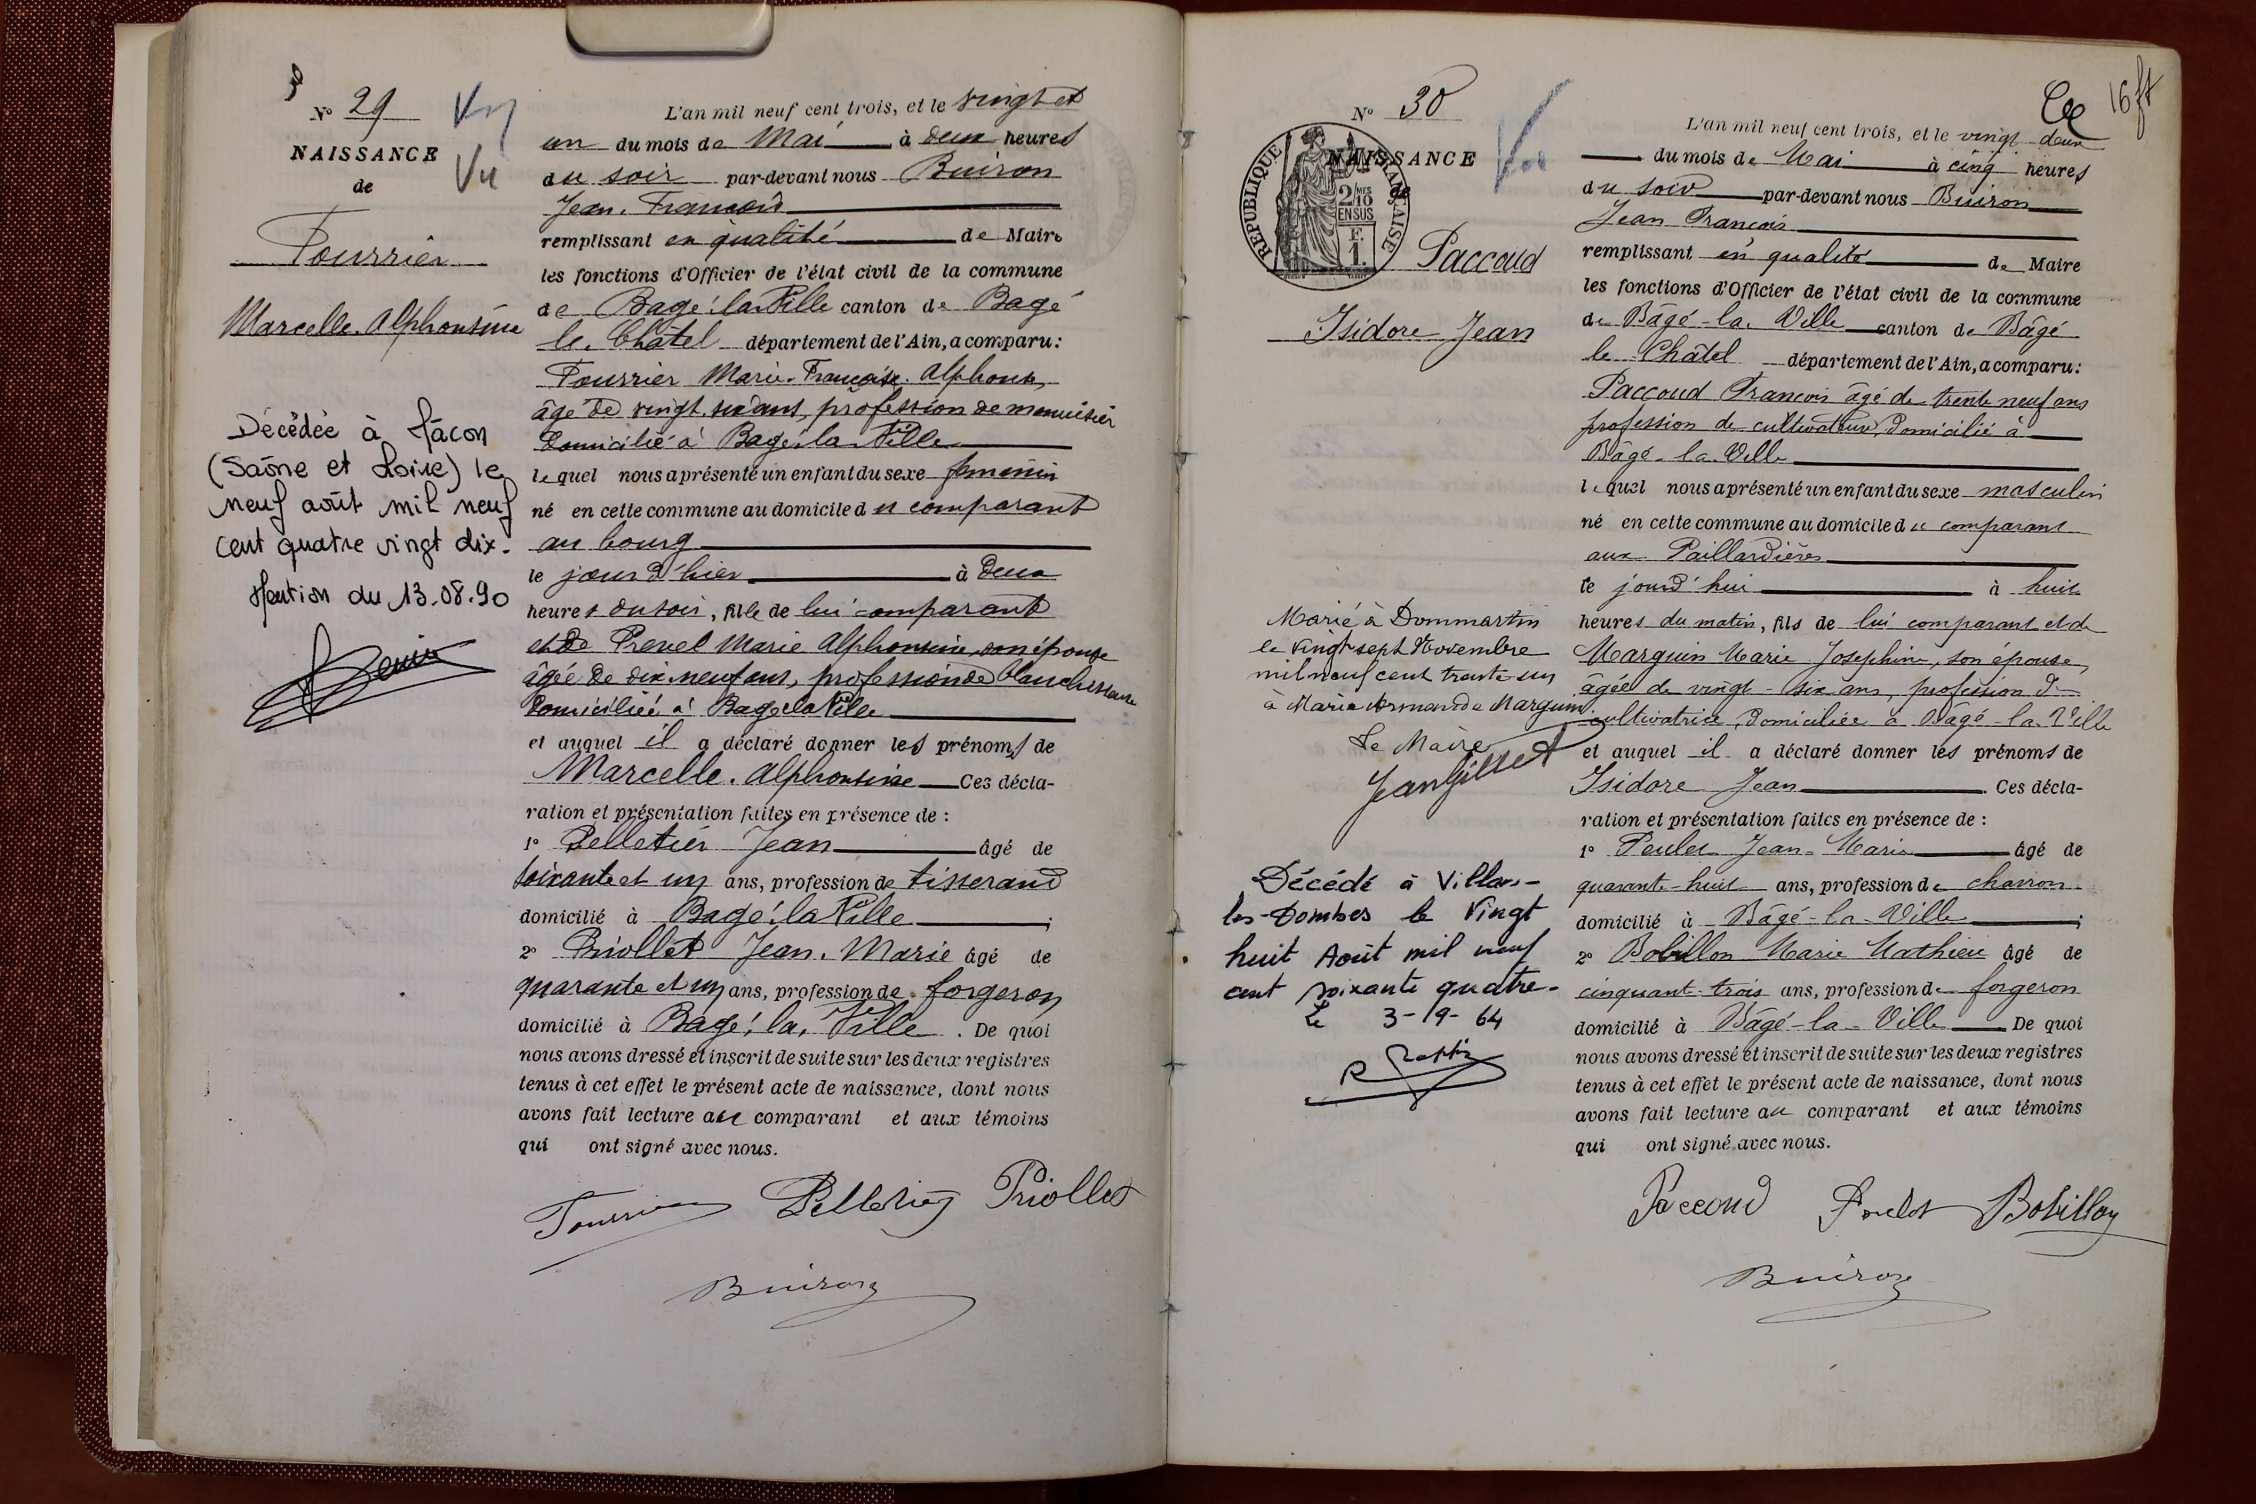 N° 29
NAISSANCE
de
Fourrier
Marcelle. Alphonsine
Vu
Vu
Décédée à Mâcon
(Saône et Loire) le
neuf août mil neuf
cent quatre vingt dix.
Mention du 13.08.90
L'an mil neuf cent trois, et le vingt et
un du mois de Mai à deux heures
du soir par-devant nous Buiron
Jean. François
remplissant en qualité de Maire
les fonctions d'Officier de l'état civil de la commune
de Bagé. la Ville canton de Bagé
le. Châtel département de l'Ain, a comparu:
Fourrier Marie. Françoise. Alphonse
âgé de vingt. six ans, profession de menuisier
domicilié à Bagé. la Ville
lequel nous a présenté un enfant du sexe féminin
né en cette commune au domicile du comparant
au bourg
le jour d'hier à deux
heures du soir, fille de lui comparant
et de Prevel Marie Alphonsine, son épouse
âgée de dix-neuf ans, profession de blanchisseuse
domiciliée à Bagé la Ville
et auquel il a déclaré donner les prénoms de
Marcelle. Alphonsine Ces décla-
ration et présentation faites en présence de :
1° Pelletier Jean âgé de
soixante et un ans, profession de tisserand
domicilié à Bagé. la Ville ;
2° Priollet Jean. Marie âgé de
quarante et un ans, profession de forgeron
domicilié à Bagé. la. Ville. De quoi
nous avons dressé et inscrit de suite sur les deux registres
tenus à cet effet le présent acte de naissance, dont nous
avons fait lecture au comparant et aux témoins
qui ont signé avec nous.
Fourrier Pelletier Priollet
Buiron
N° 30
NAISSANCE
de
REPUBLIQUE FRANÇAISE
2/10
EN SUS
F.
1.
Paccoud
Isidore Jean
Vu
Marié à Dommartin
le vingt sept Novembre
mil neuf cent trente un
à Marie Armande Marguin
Le Maire
Jean Gillet
Décédé à Villars-
les-Dombes le Vingt
huit Août mil neuf
cent soixante quatre-
Le 3-9-64
16 ft
L'an mil neuf cent trois, et le vingt deux
du mois de Mai à cinq heures
du soir par-devant nous Buiron
Jean François
remplissant en qualité de Maire
les fonctions d'Officier de l'état civil de la commune
de Bâgé-la-Ville canton de Bâgé
le Châtel département de l'Ain, a comparu:
Paccoud François âgé de trente neuf ans
profession de cultivateur, domicilié à
Bâgé-la-Ville
lequel nous a présenté un enfant du sexe masculin
né en cette commune au domicile du comparant
aux Paillardières
le jourd'hui à huit
heures du matin, fils de lui comparant et de
Marguin Marie Josephine, son épouse,
âgée de vingt-six ans, profession de
cultivatrice, domiciliée à Bâgé-la-Ville
et auquel il a déclaré donner les prénoms de
Isidore Jean. Ces décla-
ration et présentation faites en présence de :
1° Poulet Jean-Marie âgé de
quarante-huit ans, profession de charron
domicilié à Bâgé-la-Ville ;
2° Bobillon Marie Mathieu âgé de
cinquant-trois ans, profession de forgeron
domicilié à Bâgé-la-Ville De quoi
nous avons dressé et inscrit de suite sur les deux registres
tenus à cet effet le présent acte de naissance, dont nous
avons fait lecture au comparant et aux témoins
qui ont signé avec nous.
Paccoud Poulet Bobillon
Buiron